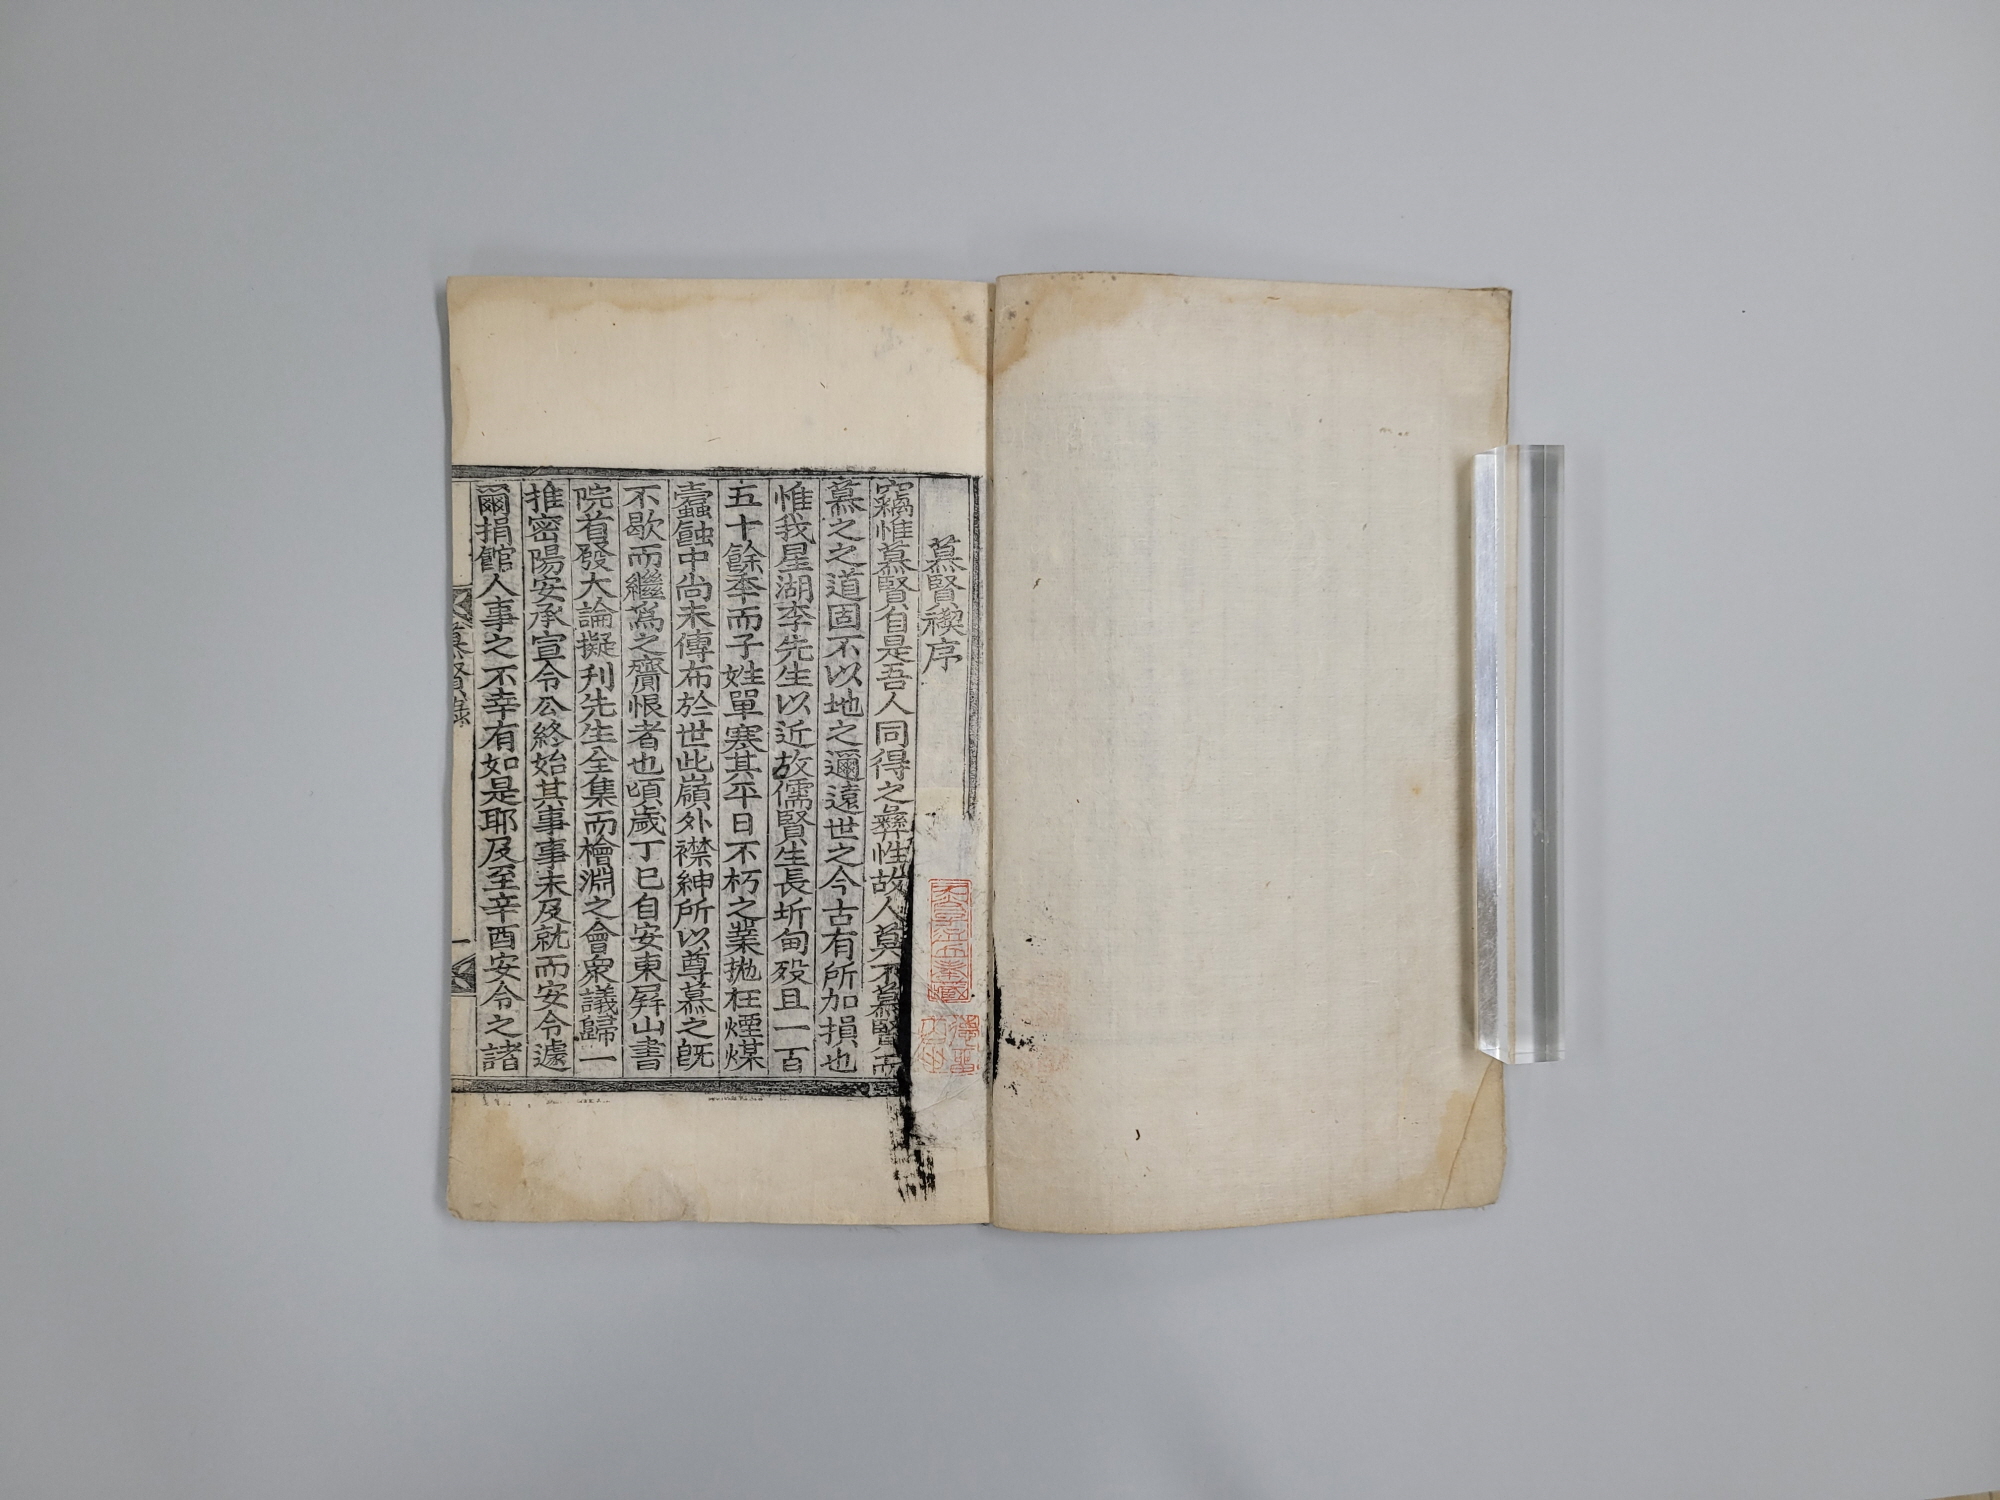 慕賢禊序
竊惟慕賢自是吾人同得之彛性故人莫不慕賢而
慕之之道固不以地之邇遠世之今古有所加損也
惟我星湖李先生以近故儒賢生長圻甸殁且一百
五十餘季而子姓單寒其平日不朽之業抛在煙煤
蠹蝕中尙未傳布於世此嶺外襟紳所以尊慕之旣
不歇而繼爲之齎恨者也頃歲丁巳自安東屛山書
院首發大論擬刋先生全集而檜淵之會衆議歸一
推密陽安承宣令公終始其事事未及就而安令遽
爾捐館人事之不幸有如是耶及至辛酉安令之諸
慕賢錄
一